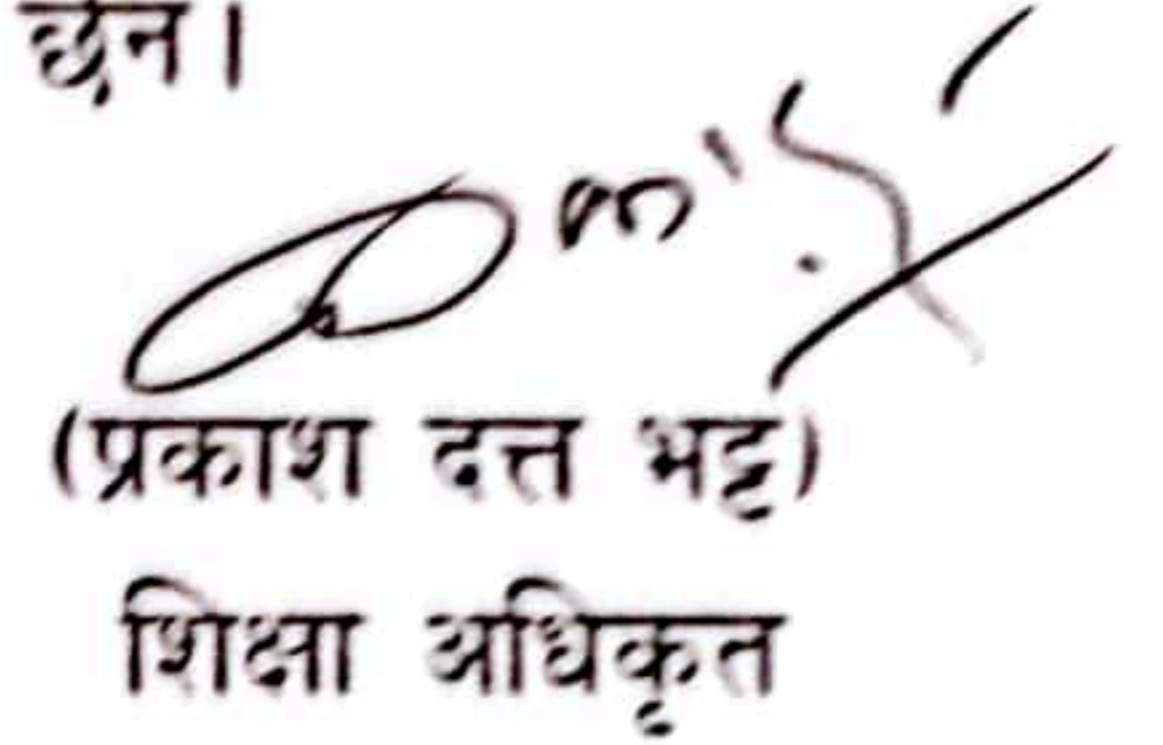 छन।
(प्रकाश दत्त भट्ट)
शिक्षा अधिकृत